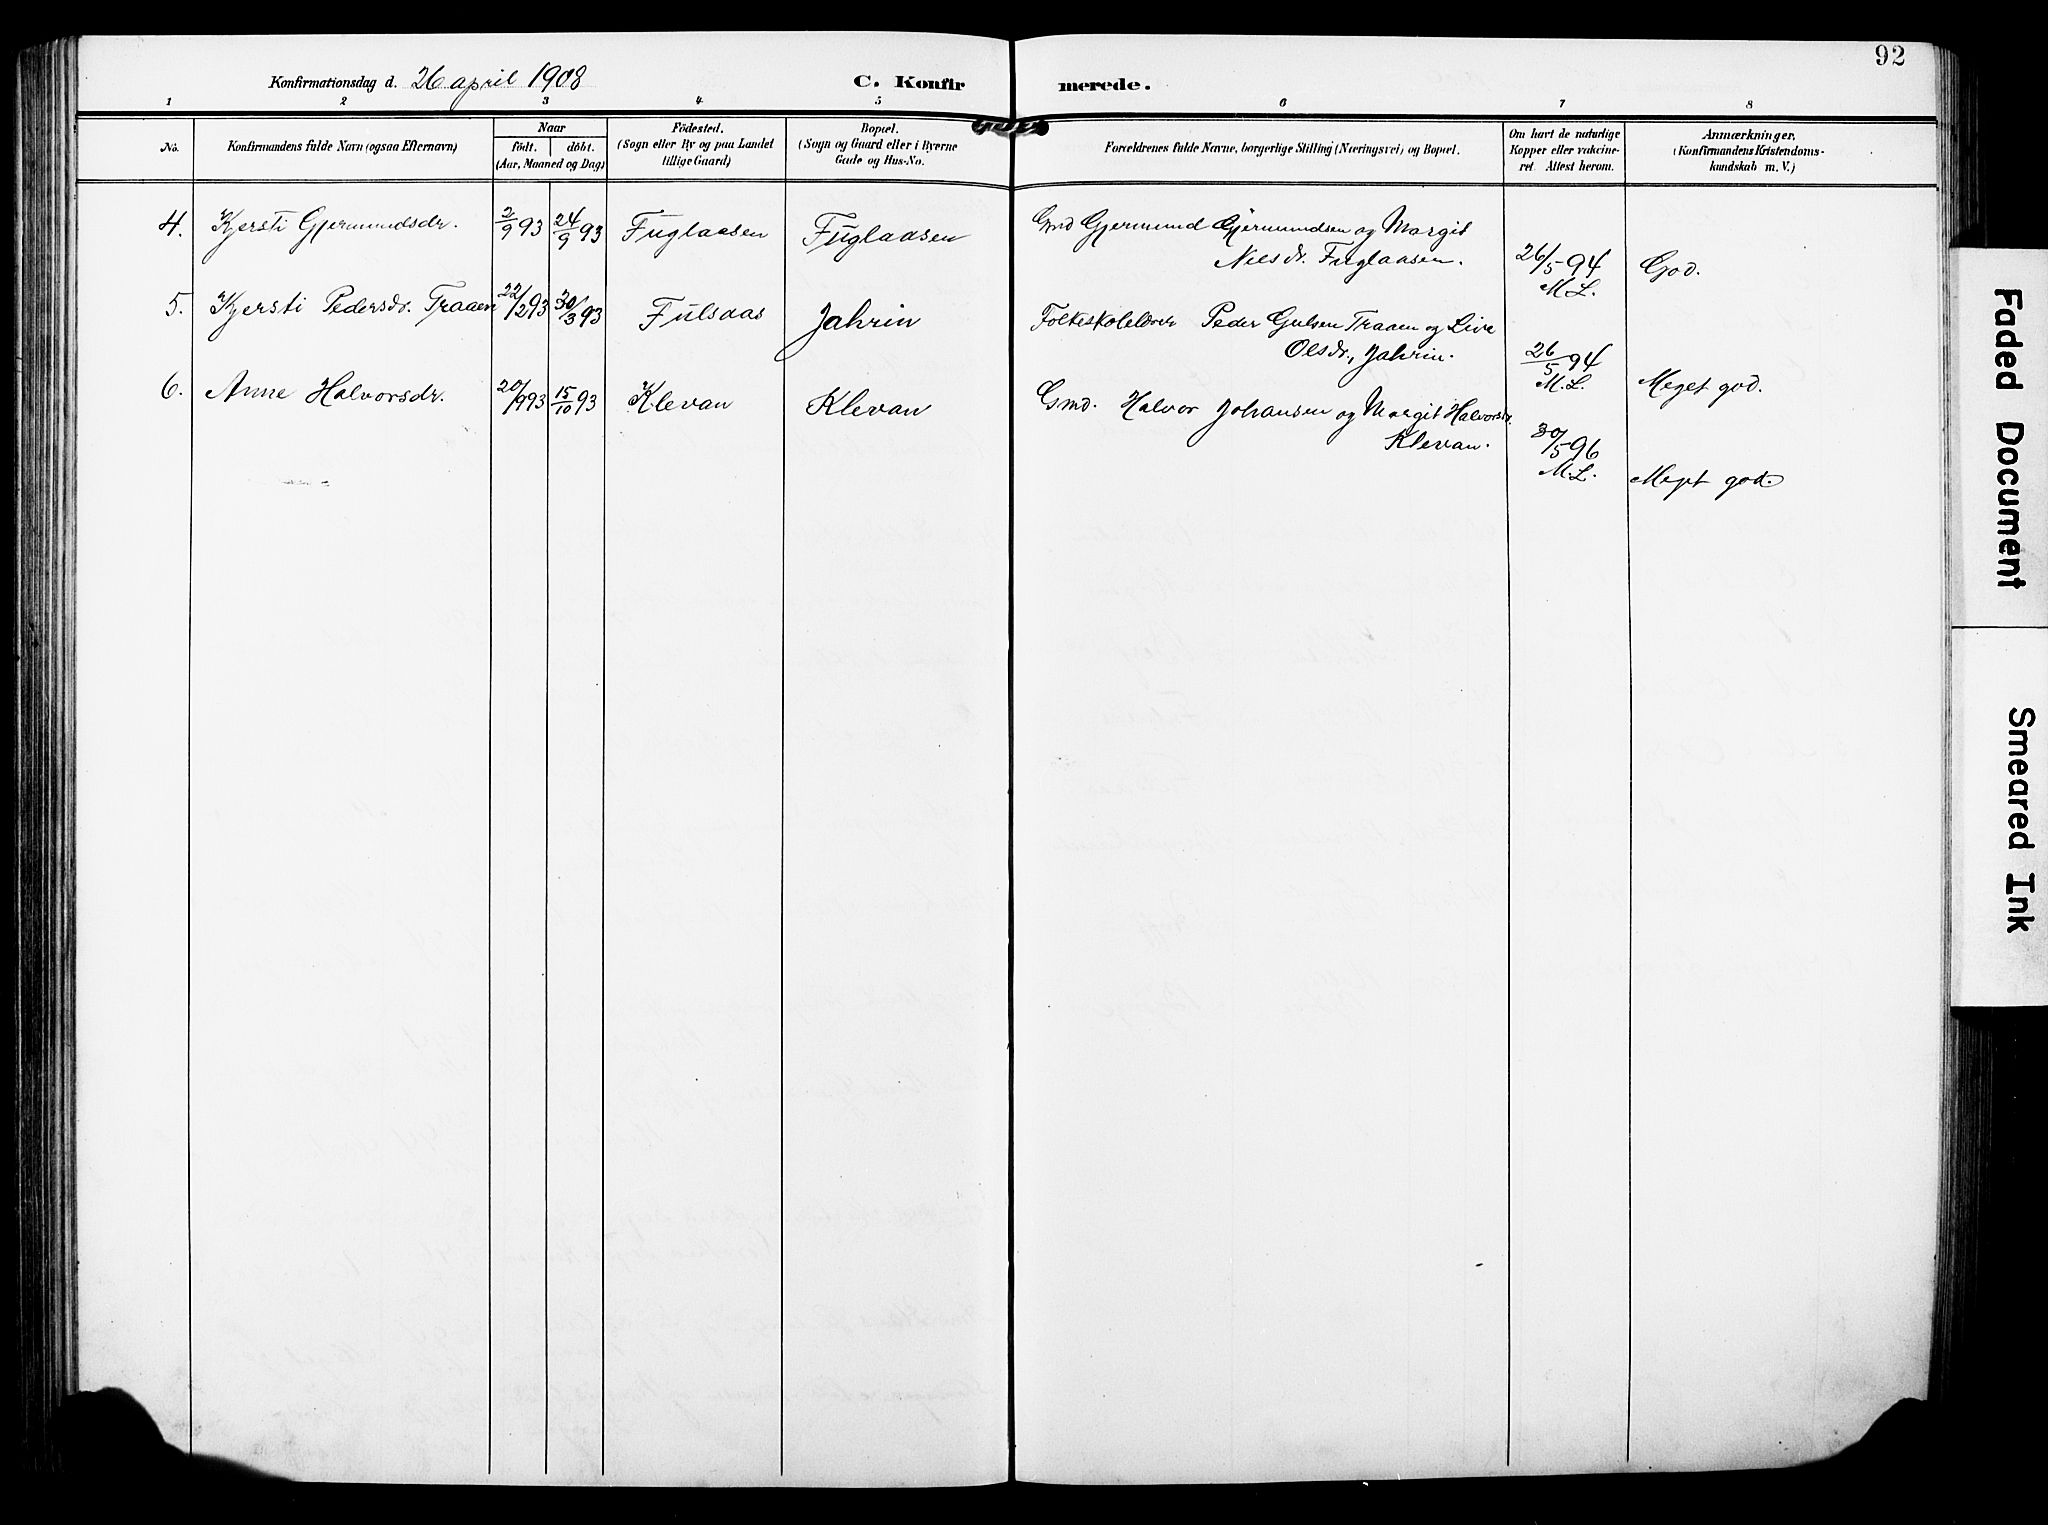 92
Konfirmationsdag d. 26 april 1908 C. Konfirmerede.
1 2 3 4 5 6 7 8
No. Konfirmandens fulde Navn (ogsaa Efternavn) Naar født. døbt. (Aar, Maaned og Dag) Fødested. (Sogn eller By og paa Landet tillige Gaard) Bopæl. (Sogn og Gaard eller i Byerne Gade og Hus-No. Forældrenes fulde Navne, borgerlige Stilling (Næringsvei) og Bopæl. Om havt de naturlige Kopper eller vakcineret. Attest herom. Anmærkninger. (Konfirmandens Kristendomskundskab m. V.)
4. Kjersti Gjermundsdr. 2/9 93 24/9 93 Fuglaasen Fuglaasen Gmd Gjermund Gjermundsen og Margit
Nielsdr. Fuglaasen. 26/5 94 God.
M.L.
5. Kjersti Pedersdr. Traaen 22/2 93 30/3 93 Fulsaas Jahrin Folkeskolelærer Peder Gulsen Traaen og Live
Olsdr., Jahrin. 26/5 94
M.L. Meget god.
6. Anne Halvorsdr. 20/9 93 15/10 93 Klevan Klevan Gmd. Halvor Johansen og Margit Halvorsdr.
Klevan. 30/5 96
M.L. Meget god.
Faded Document
Smeared Ink